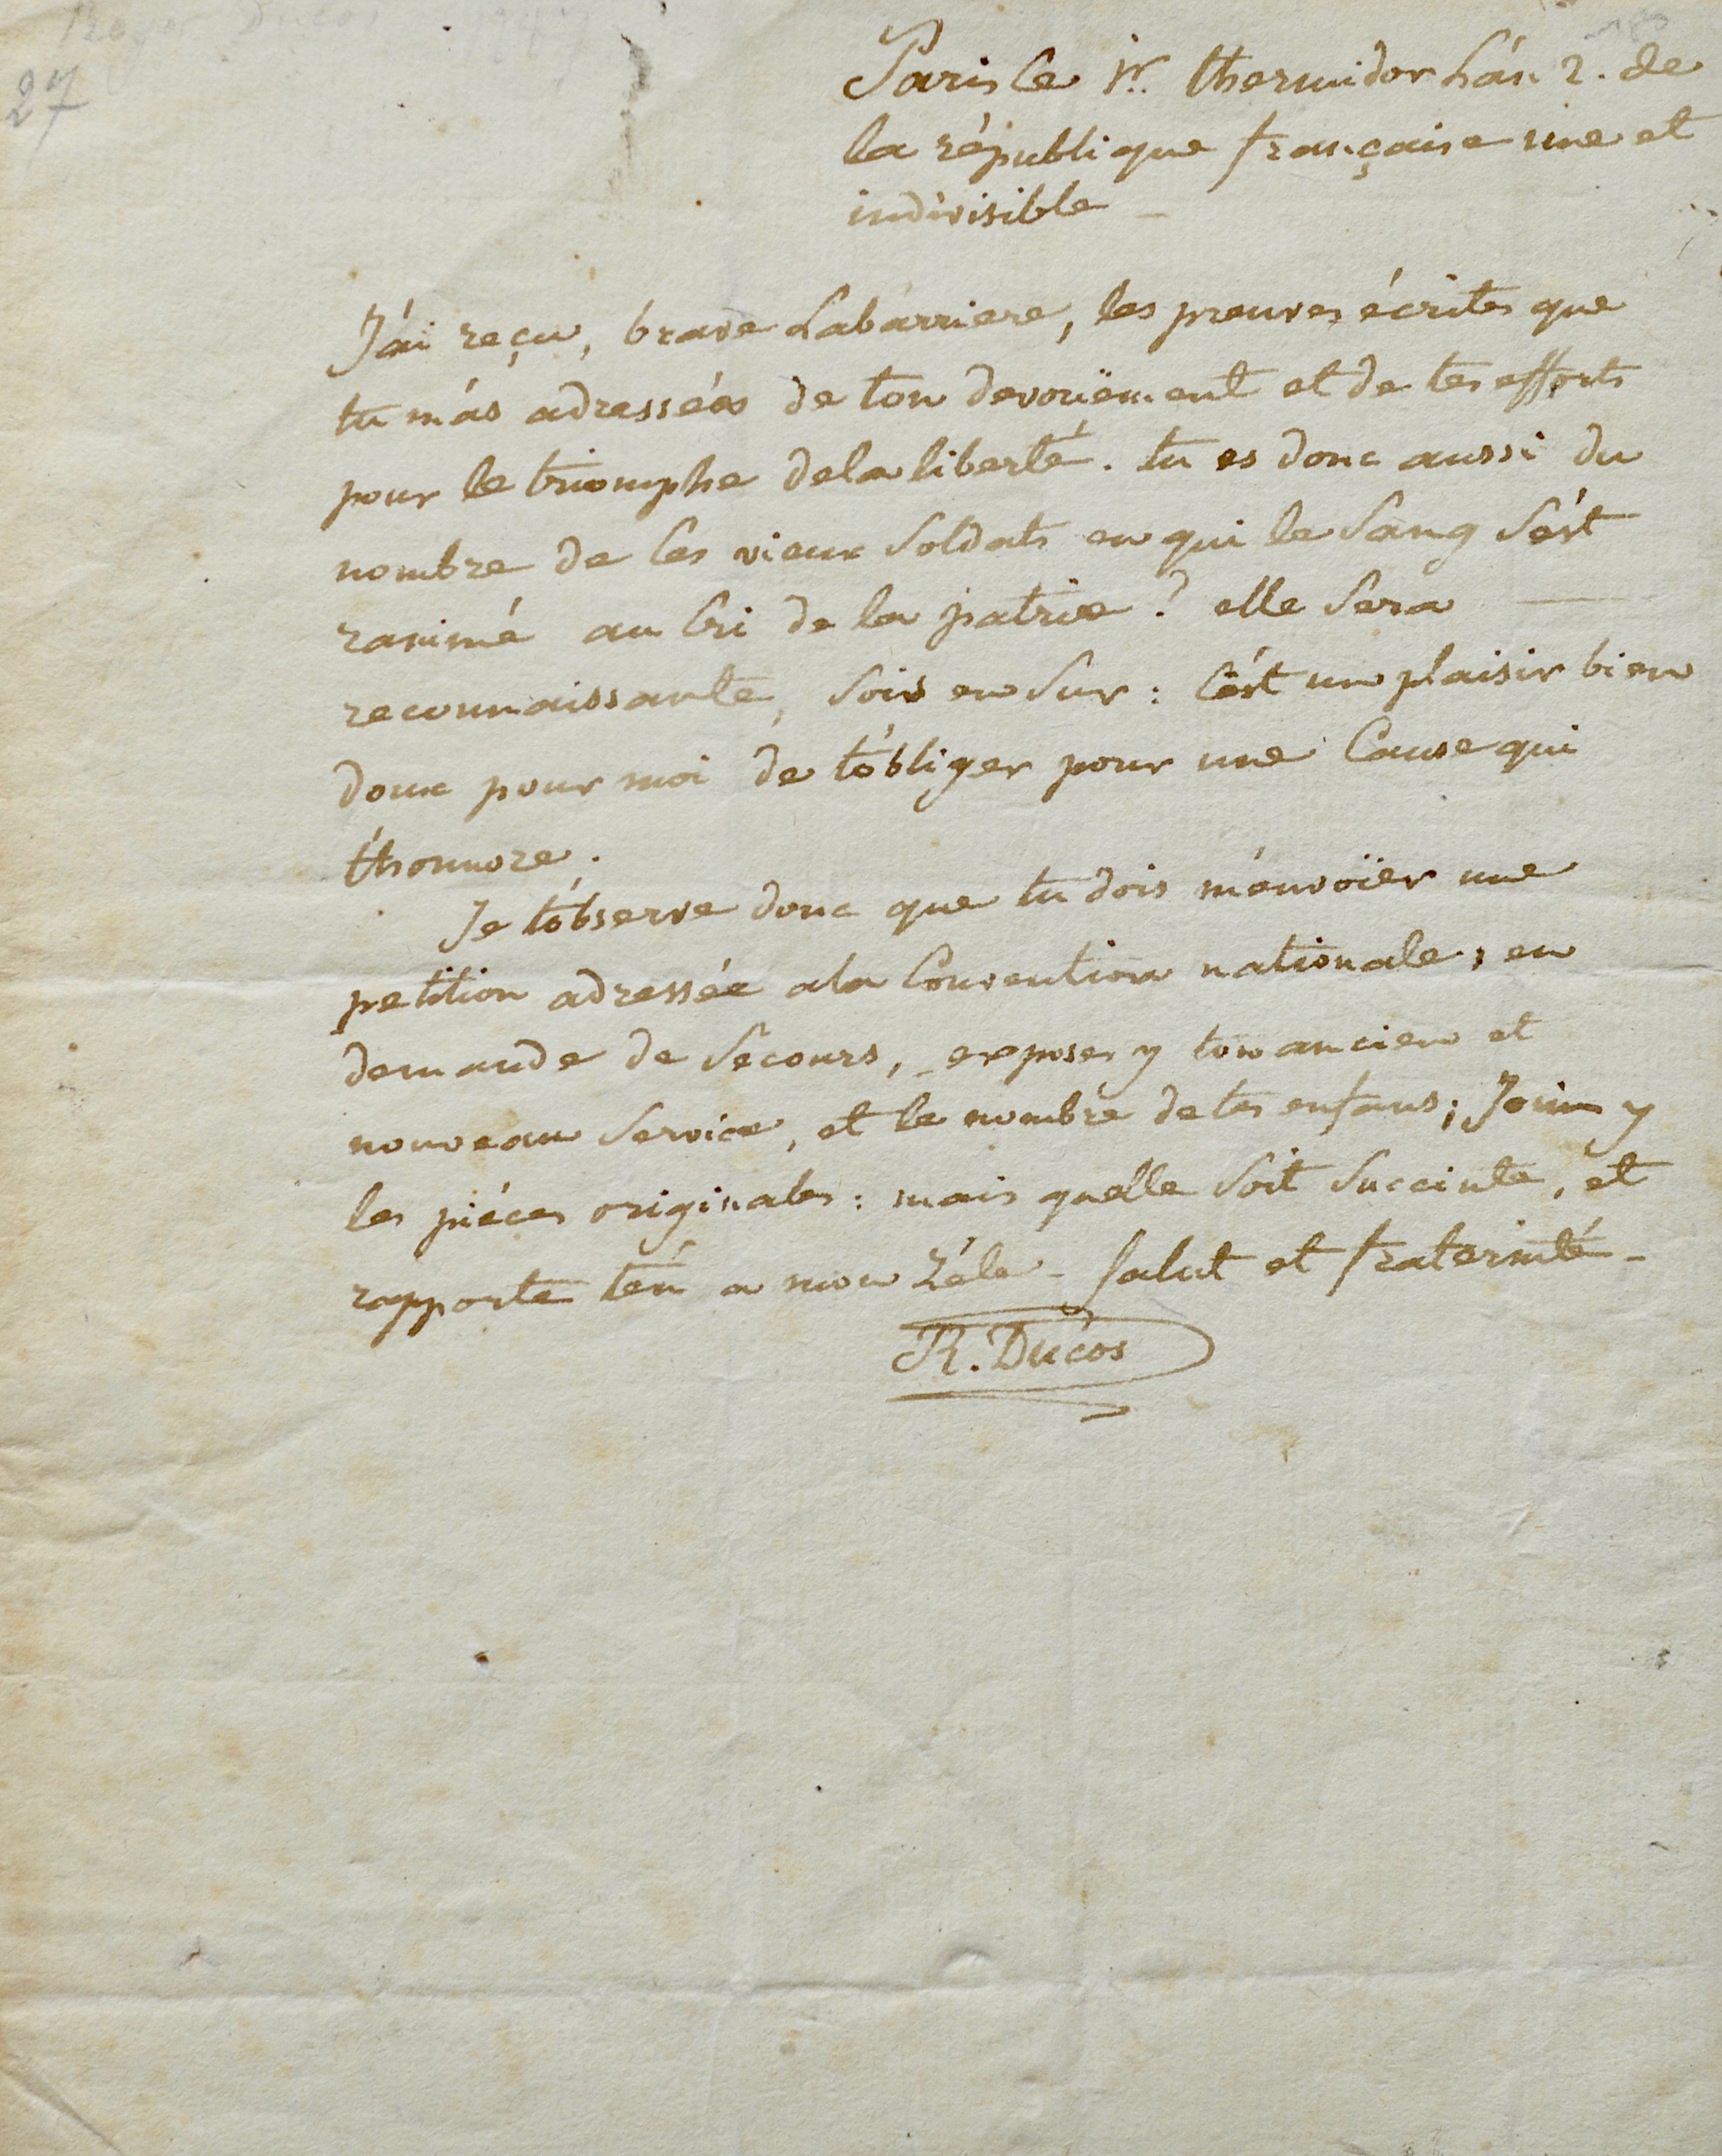 Roger Ducos
27
Paris le 1r. thermidor l'án 2. de
la république française une et
indivisible _
J'ai reçu, brave Labarriere, les preuves écrites que
tu m'ás adressées de ton devoüement et de tes efforts
pour le triomphe de la liberté. tu es donc aussi du
nombre de ces vieux soldats en qui le sang s'ést
ranimé au cri de la patrie? elle sera
reconnaissante, sois en sur: c'ést un plaisir bien
doux pour moi de t'óbliger pour une Cause qui
t'honnore.
Je t'óbserve donc que tu dois m'énvoïer une
petition adressée a la Convention nationale, en
demande de secours, exposes y ton ancien et
nouveau service, et le nombre de tes enfans; Joins y
les piéces originales: mais quélle soit succinte, et
rapporte t'én a mon Zéle _ salut et fraternité _
R. Ducos